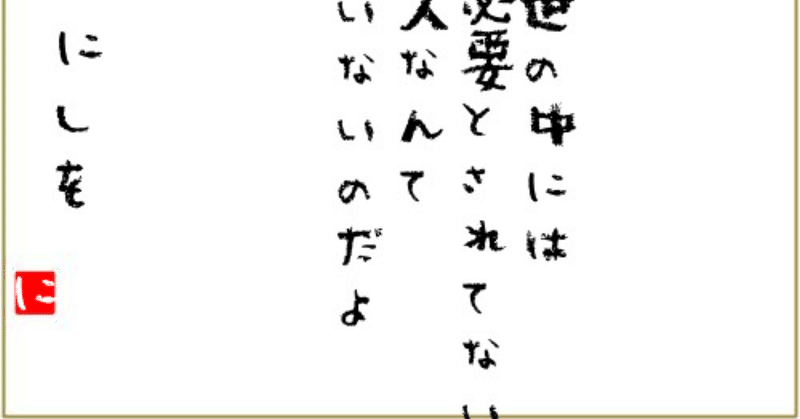 世の中には
必要とされてない
人なんて
いないのだよ
にしを
に